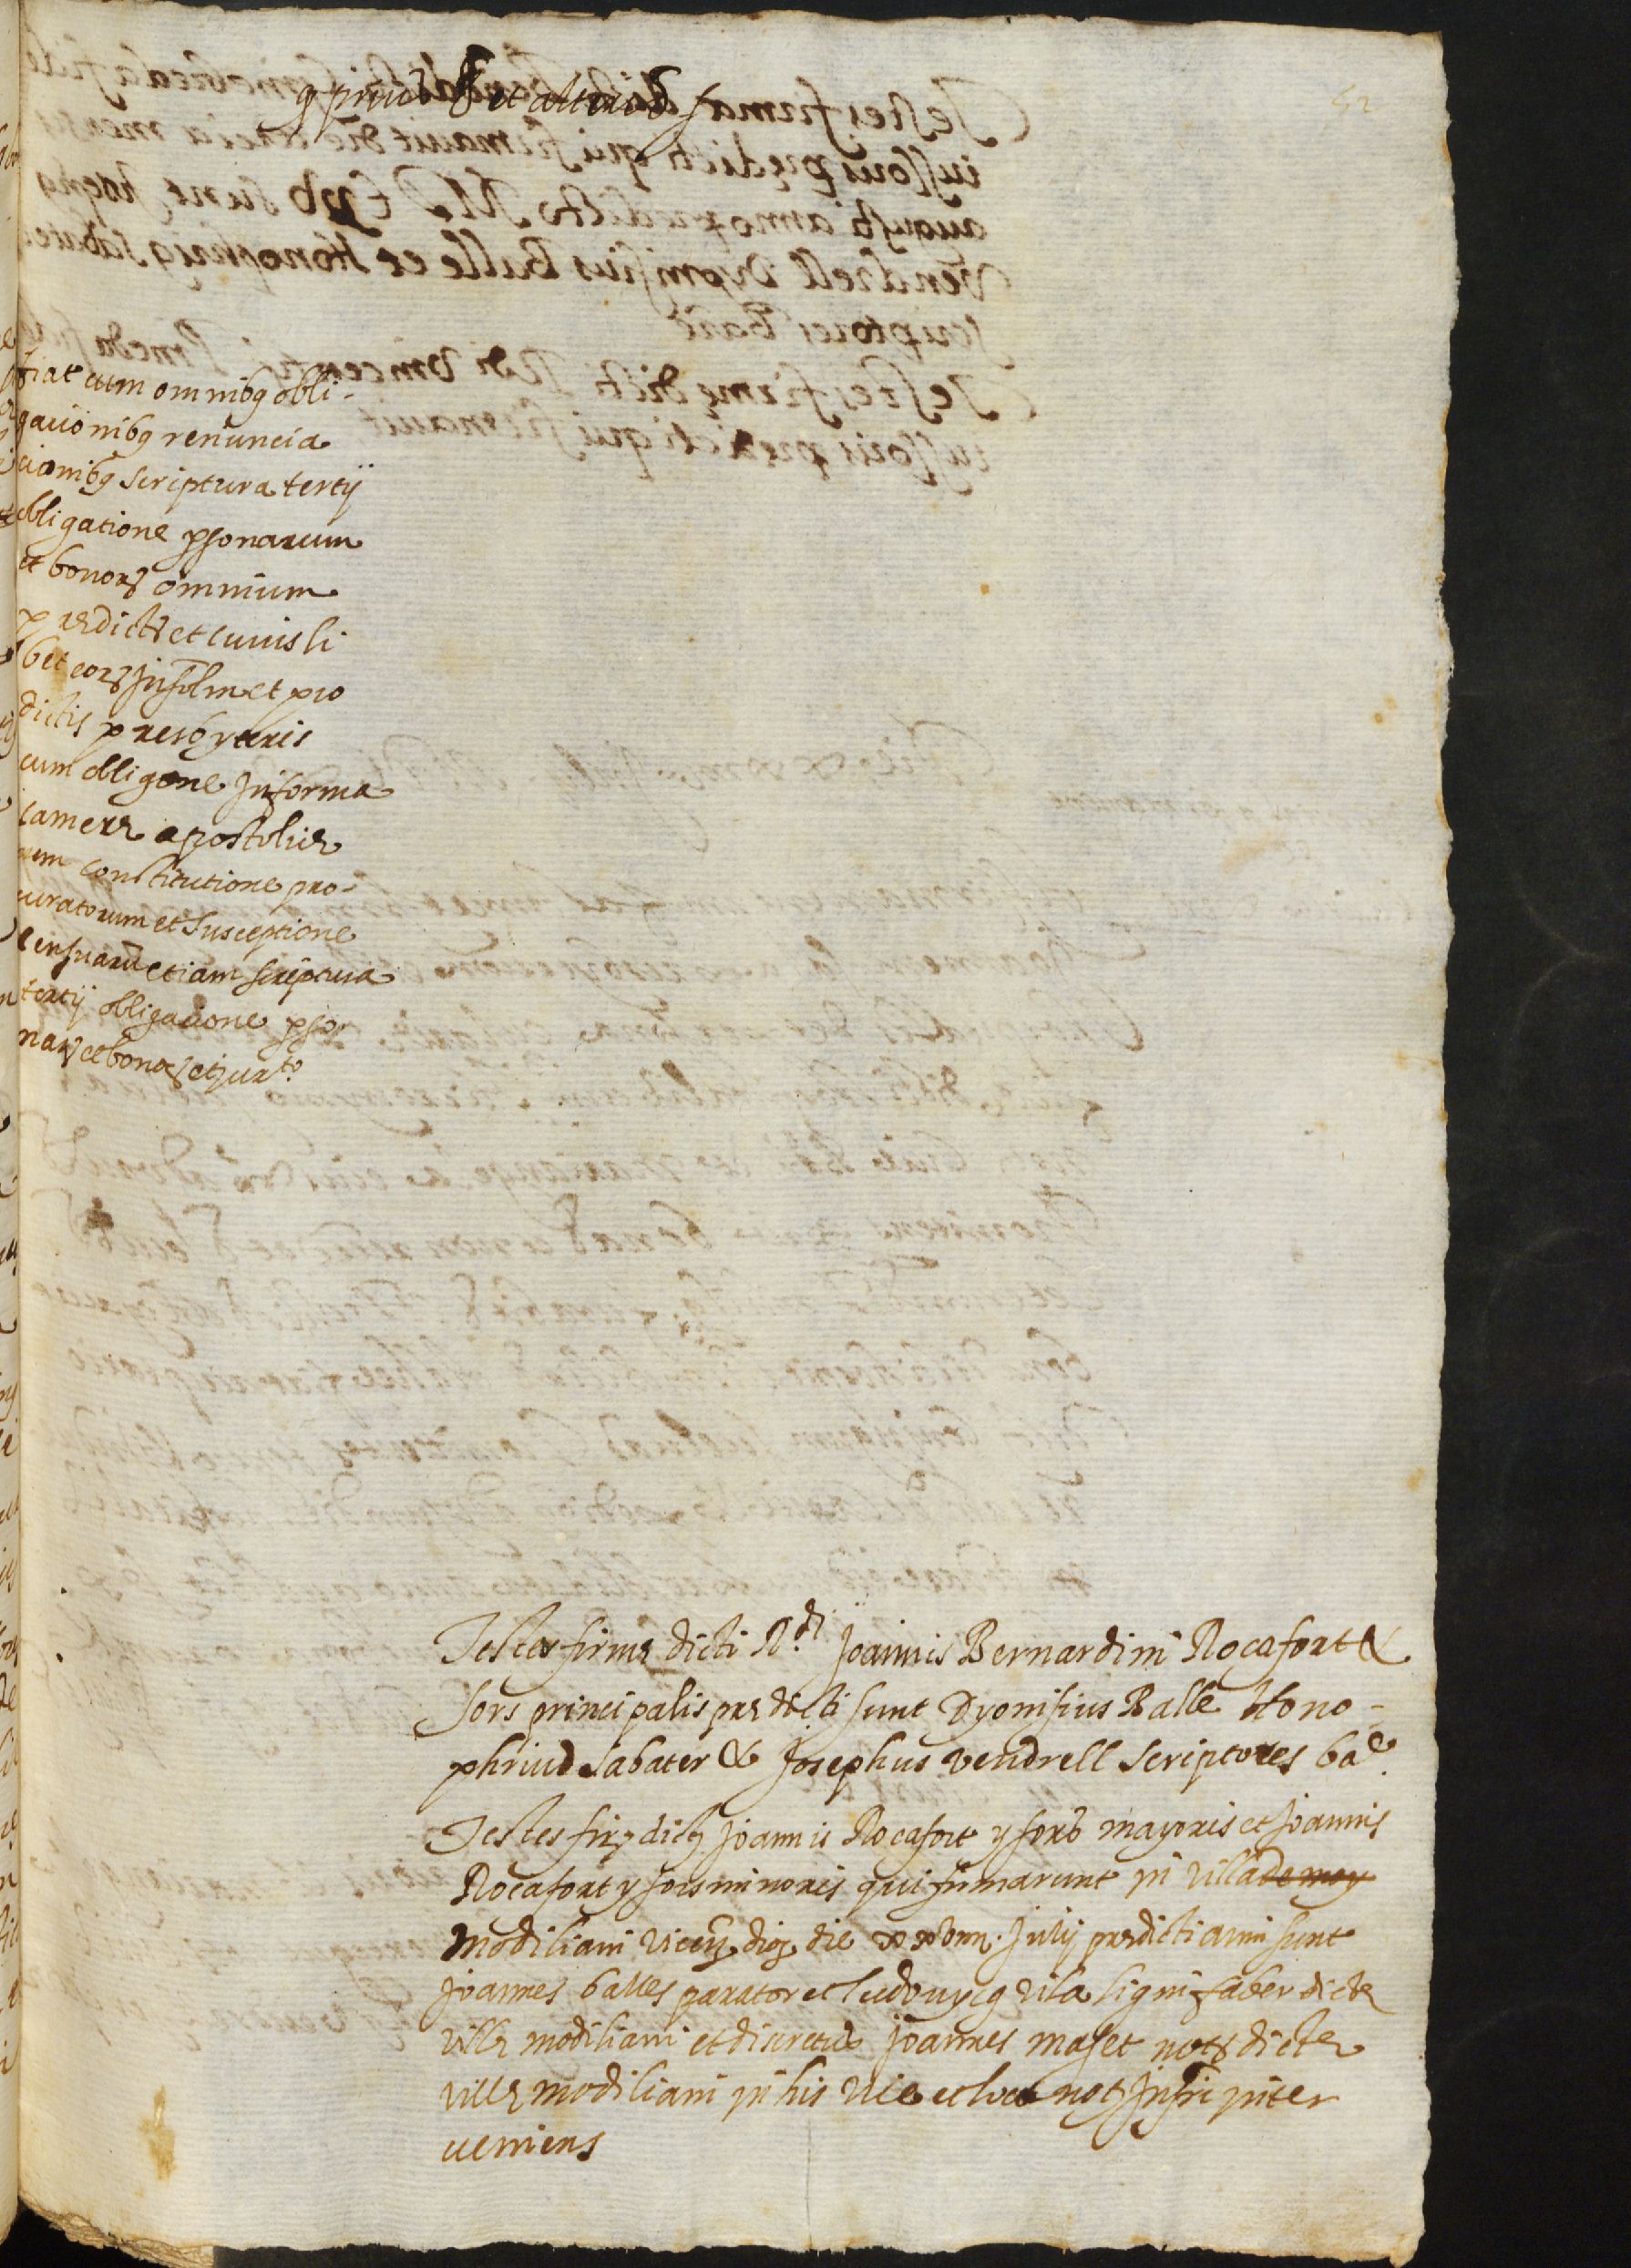 52
fiat cum omnibq obli-
gacionibq renuncia
cionibq scriptura tertij
obligatione psonarum
et bonorꝝ omnium
prædictꝝ et cuiusli
bet eorꝝ insolm et pro
dictis presbyteris
cum obligone in forma
cameræ apostolicæ
cum constitutione pro-
curatorum et susceptione
censuarū etiam scriptura
tertij obligacione pso-
narꝝ et bonoꝝ et jurto.
Testes firmæ dicti Rdi. Joannis Bernardini Rocafort &
sors principalis prædicti sunt Dyonisius Balle Hono-
phrius Sabater & Josephus vendrell scriptores bae.
Testes firę dictꝝ Joannis Rocafort y sors mayoris et Joannis
Rocafort y sors minoris qui firmarunt in villa de moy
modiliani vicen dioę die julij prædicti anni sunt
Joannes balles parator et ludovycq vila ligni faber dictæ
villæ modiliani et discretus joannes maset notꝰ dictæ
villæ modiliani in his vice et loco notꝭ infri inter
ueniens